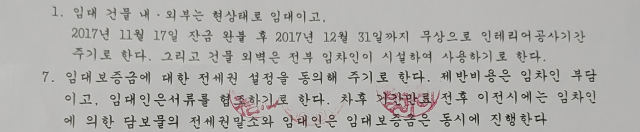 1. 임대 건물 내·외부는 현상태로 임대이고,
2017년 11월 17일 잔금 완불 후 2017년 12월 31일까지 무상으로 인테리어공사기간
주기로 한다. 그리고 건물 외벽은 전부 임차인이 시설하여 사용하기로 한다.
7. 임대보증금에 대한 전세권 설정을 동의해 주기로 한다. 제반비용은 임차인 부담
이고, 임대인은서류를 협조하기로 한다. 차후 기간만료 전후 이전시에는 임차인
에 의한 담보물의 전세권말소와 임대인은 임대보증금은 동시에 진행한다